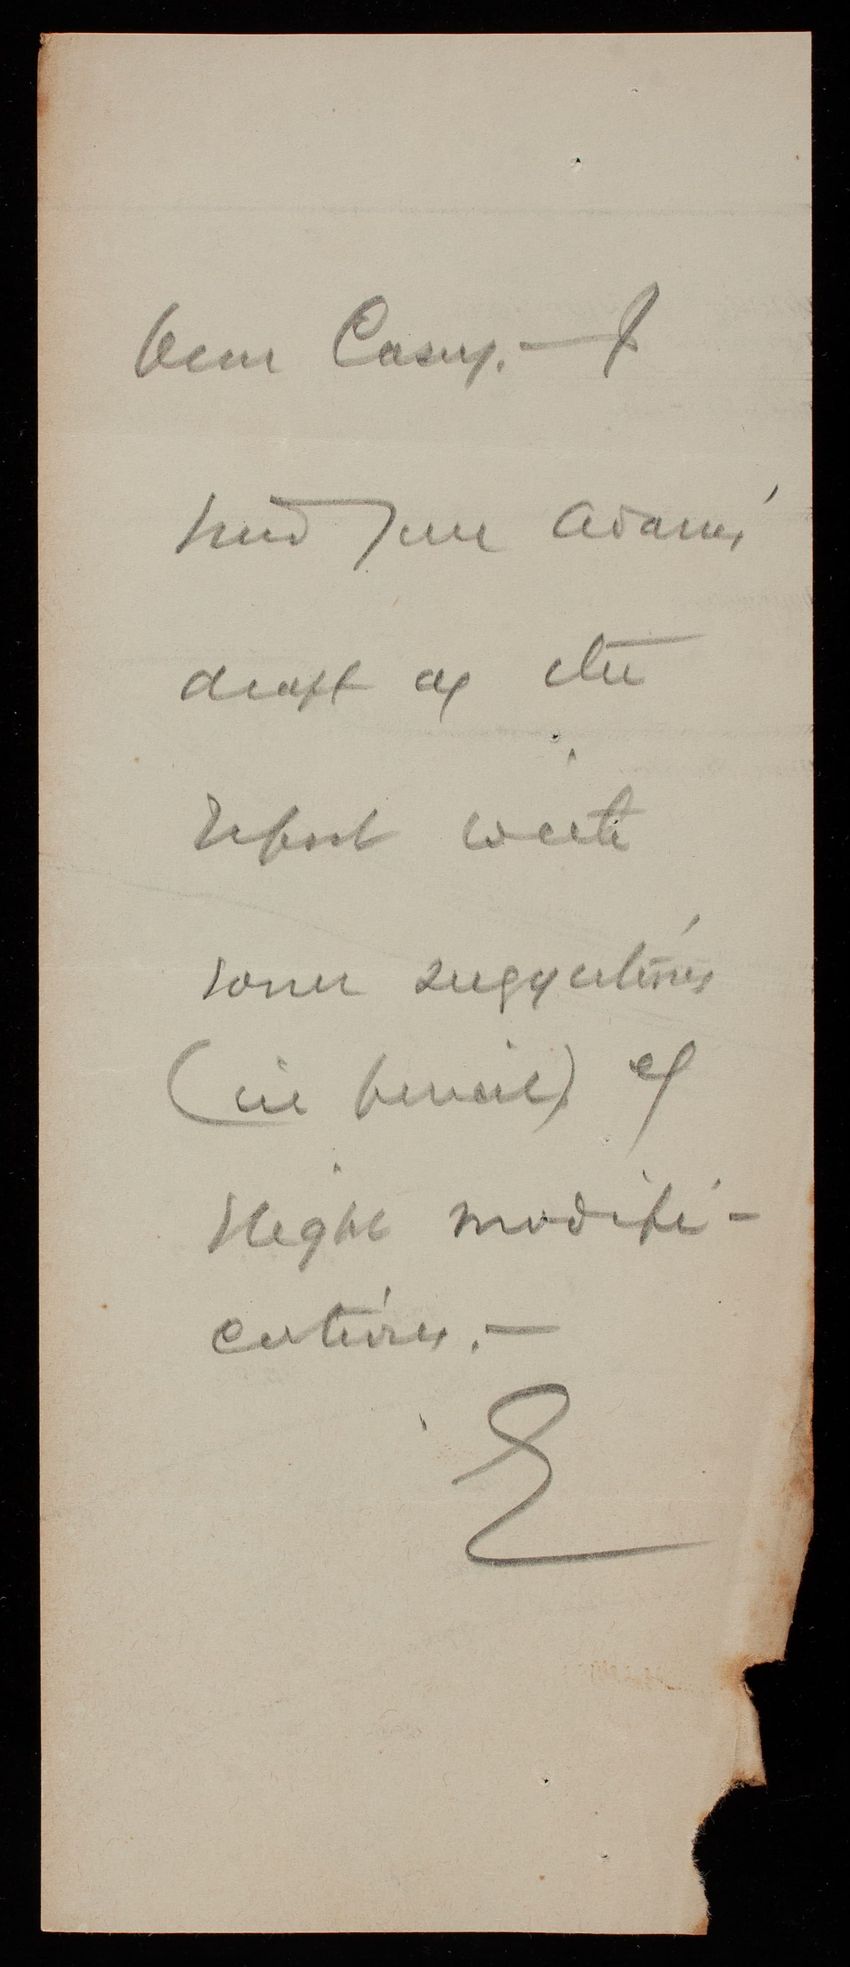 Dear Casey. — I
send you Adams'
draft of the
report with
some suggestions
(in pencil) of
slight modifi-
cations. —